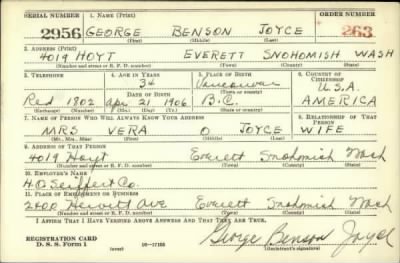 SERIAL NUMBER 1. NAME (Print) ORDER NUMBER
2956 GEORGE BENSON JOYCE 263
(First) (Middle) (Last)
2. ADDRESS (Print)
4019 HOYT EVERETT SNOHOMISH WASH
(Number and street or R. F. D. number) (Town) (County) (State)
3. TELEPHONE 4. AGE IN YEARS 5. PLACE OF BIRTH 6. COUNTRY OF CITIZENSHIP
34 Vancouver U.S.A.
DATE OF BIRTH (Town or county)
Red 1802 Apr 21 1906 B.C. AMERICA
(Mo.) (Day) (Yr.) (State or country)
7. NAME OF PERSON WHO WILL ALWAYS KNOW YOUR ADDRESS 8. RELATIONSHIP OF THAT PERSON
MRS VERA O JOYCE WIFE
(Mr., Mrs., Miss) (First) (Middle) (Last)
9. ADDRESS OF THAT PERSON
4019 Hoyt Everett Snohomish Wash
(Number and street or R. F. D. number) (Town) (County) (State)
10. EMPLOYER'S NAME
H.O. Seiffert Co.
11. PLACE OF EMPLOYMENT OR BUSINESS
2400 Hewitt Ave Everett Snohomish Wash
(Number and street or R. F. D. number) (Town) (County) (State)
I AFFIRM THAT I HAVE VERIFIED ABOVE ANSWERS AND THAT THEY ARE TRUE.
REGISTRATION CARD George Benson Joyce
D. S. S. Form 1 (over) 16—17105 (Registrant's signature)